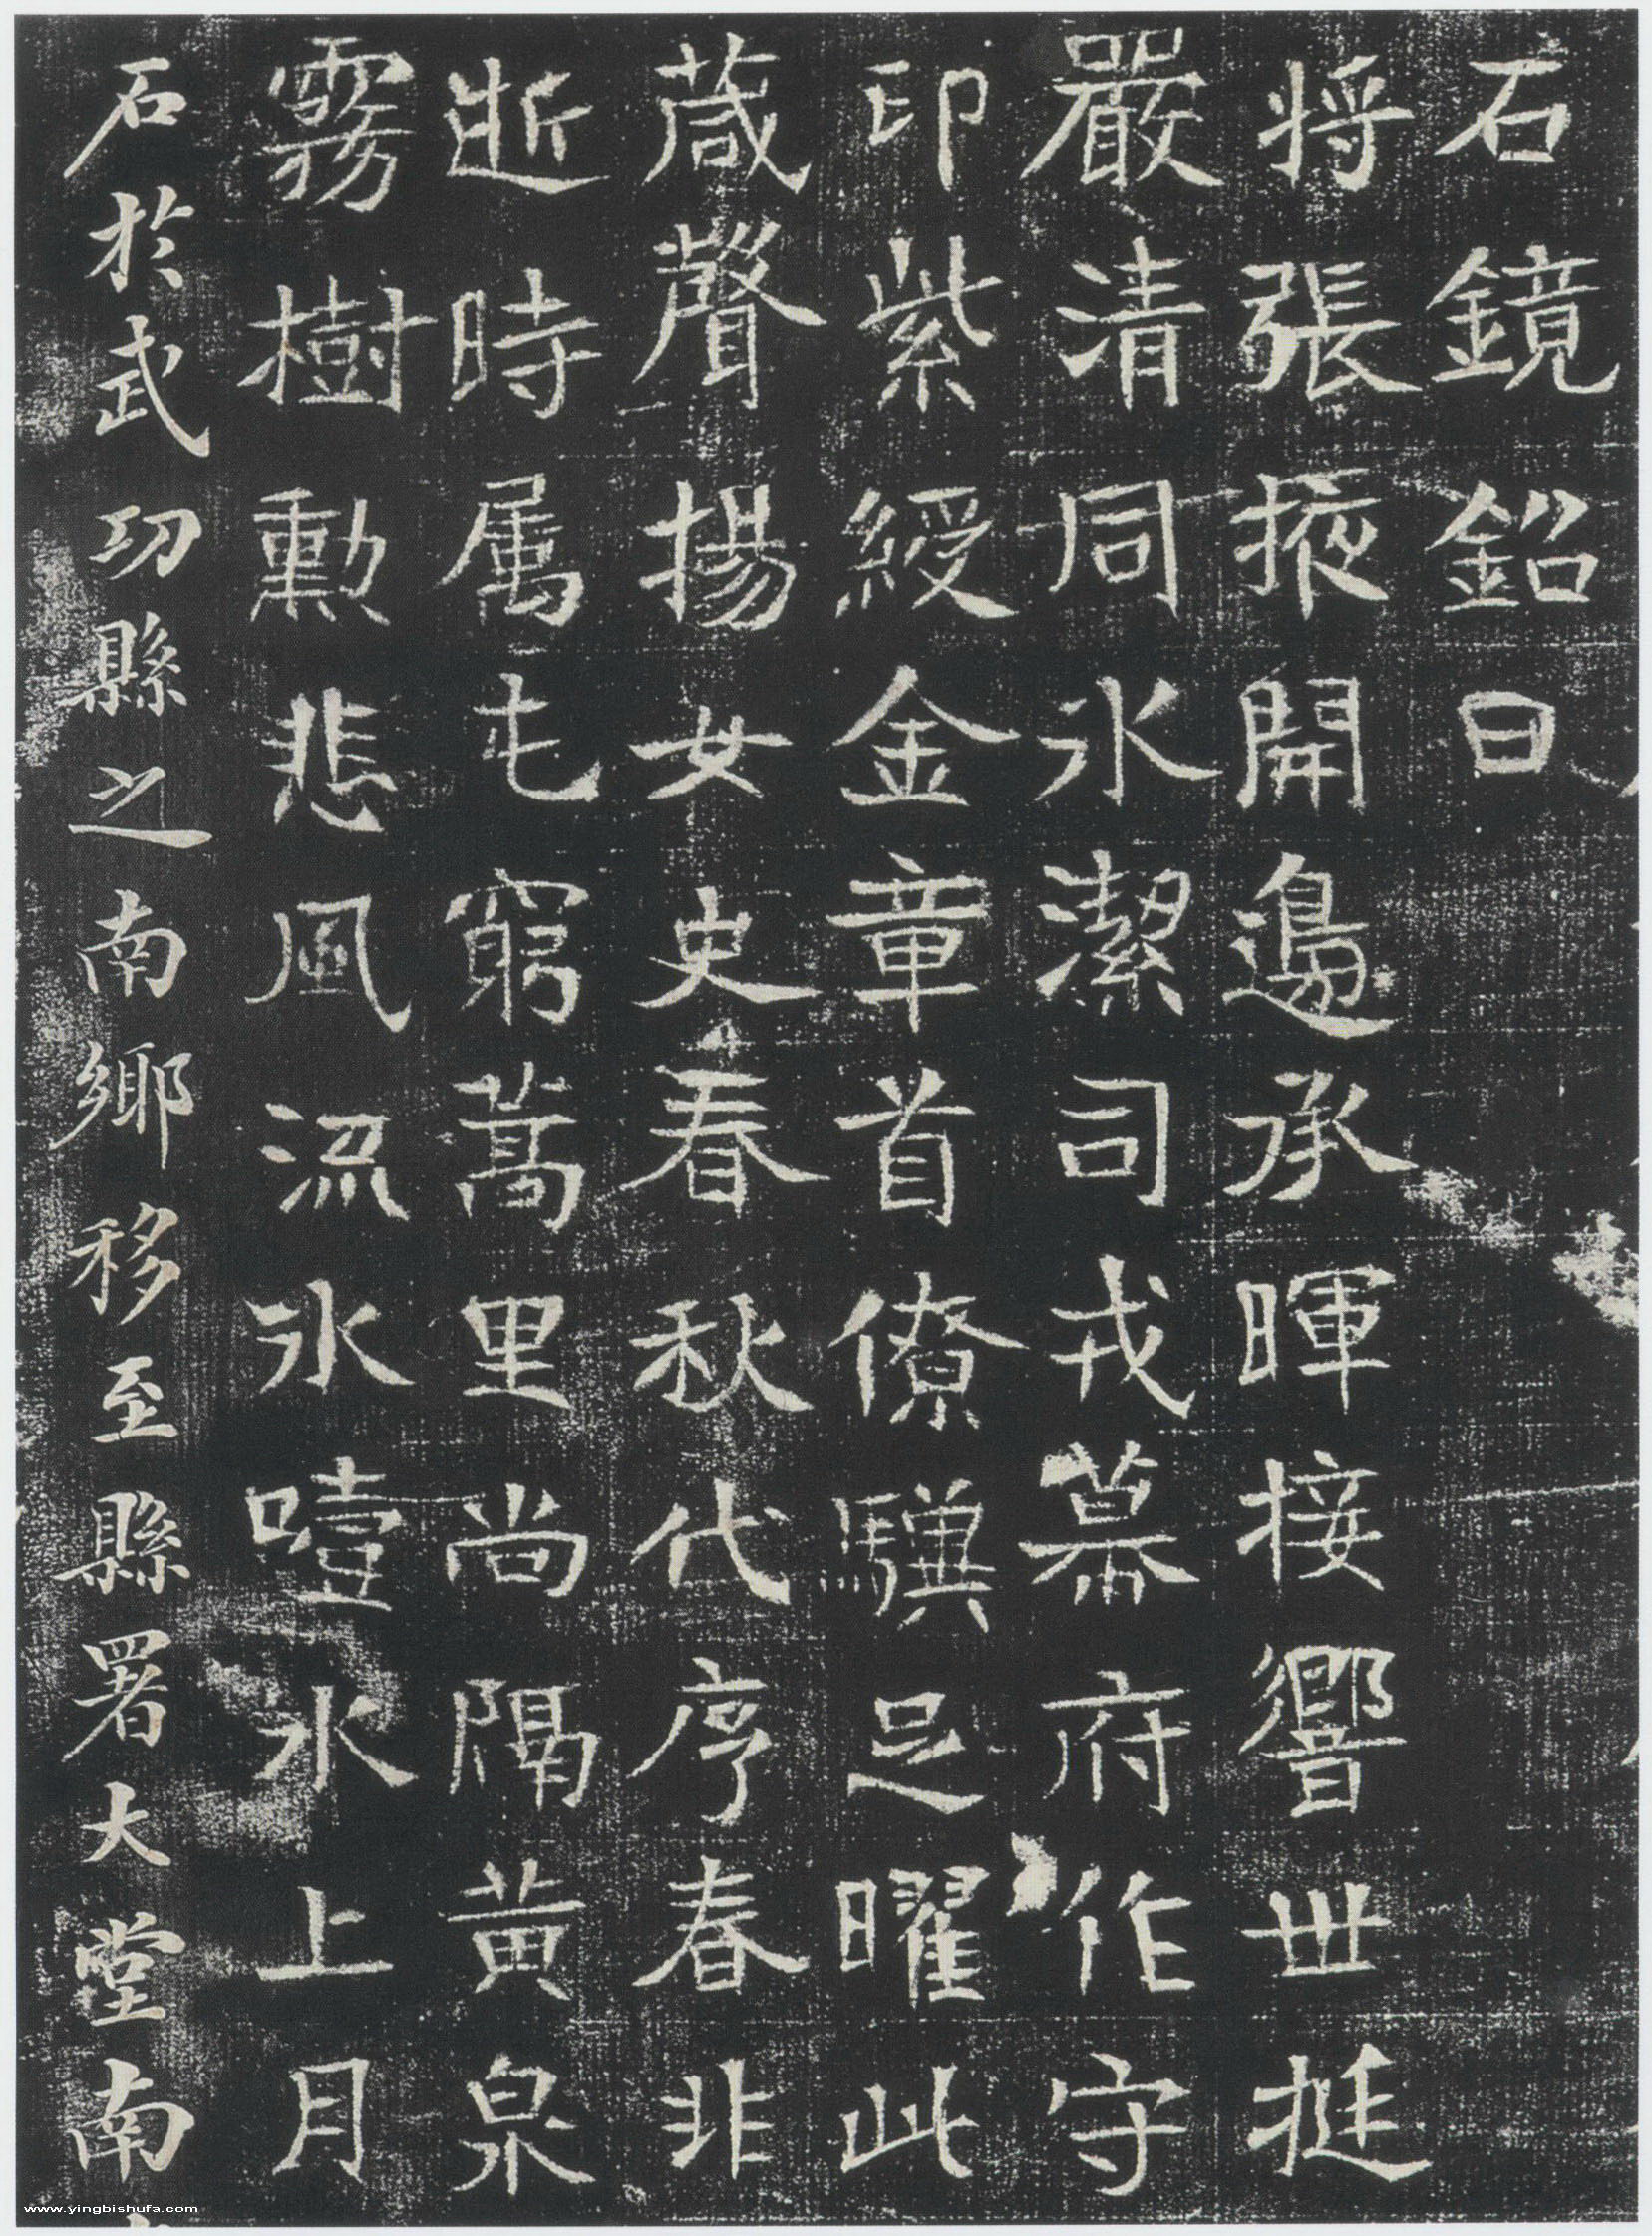 石鏡銘曰
將張掖開邊承暉接響世挺
嚴清同氷潔司戎幕府作守
印紫綬金章首僚驥足曜此
葴聲揚女史春秋代序春非
逝時属屯窮蒿里尚隔黃泉
霧樹勳悲風流水噎水上月
石於武功縣之南鄉移至縣署大堂南
www.yingbishufa.com